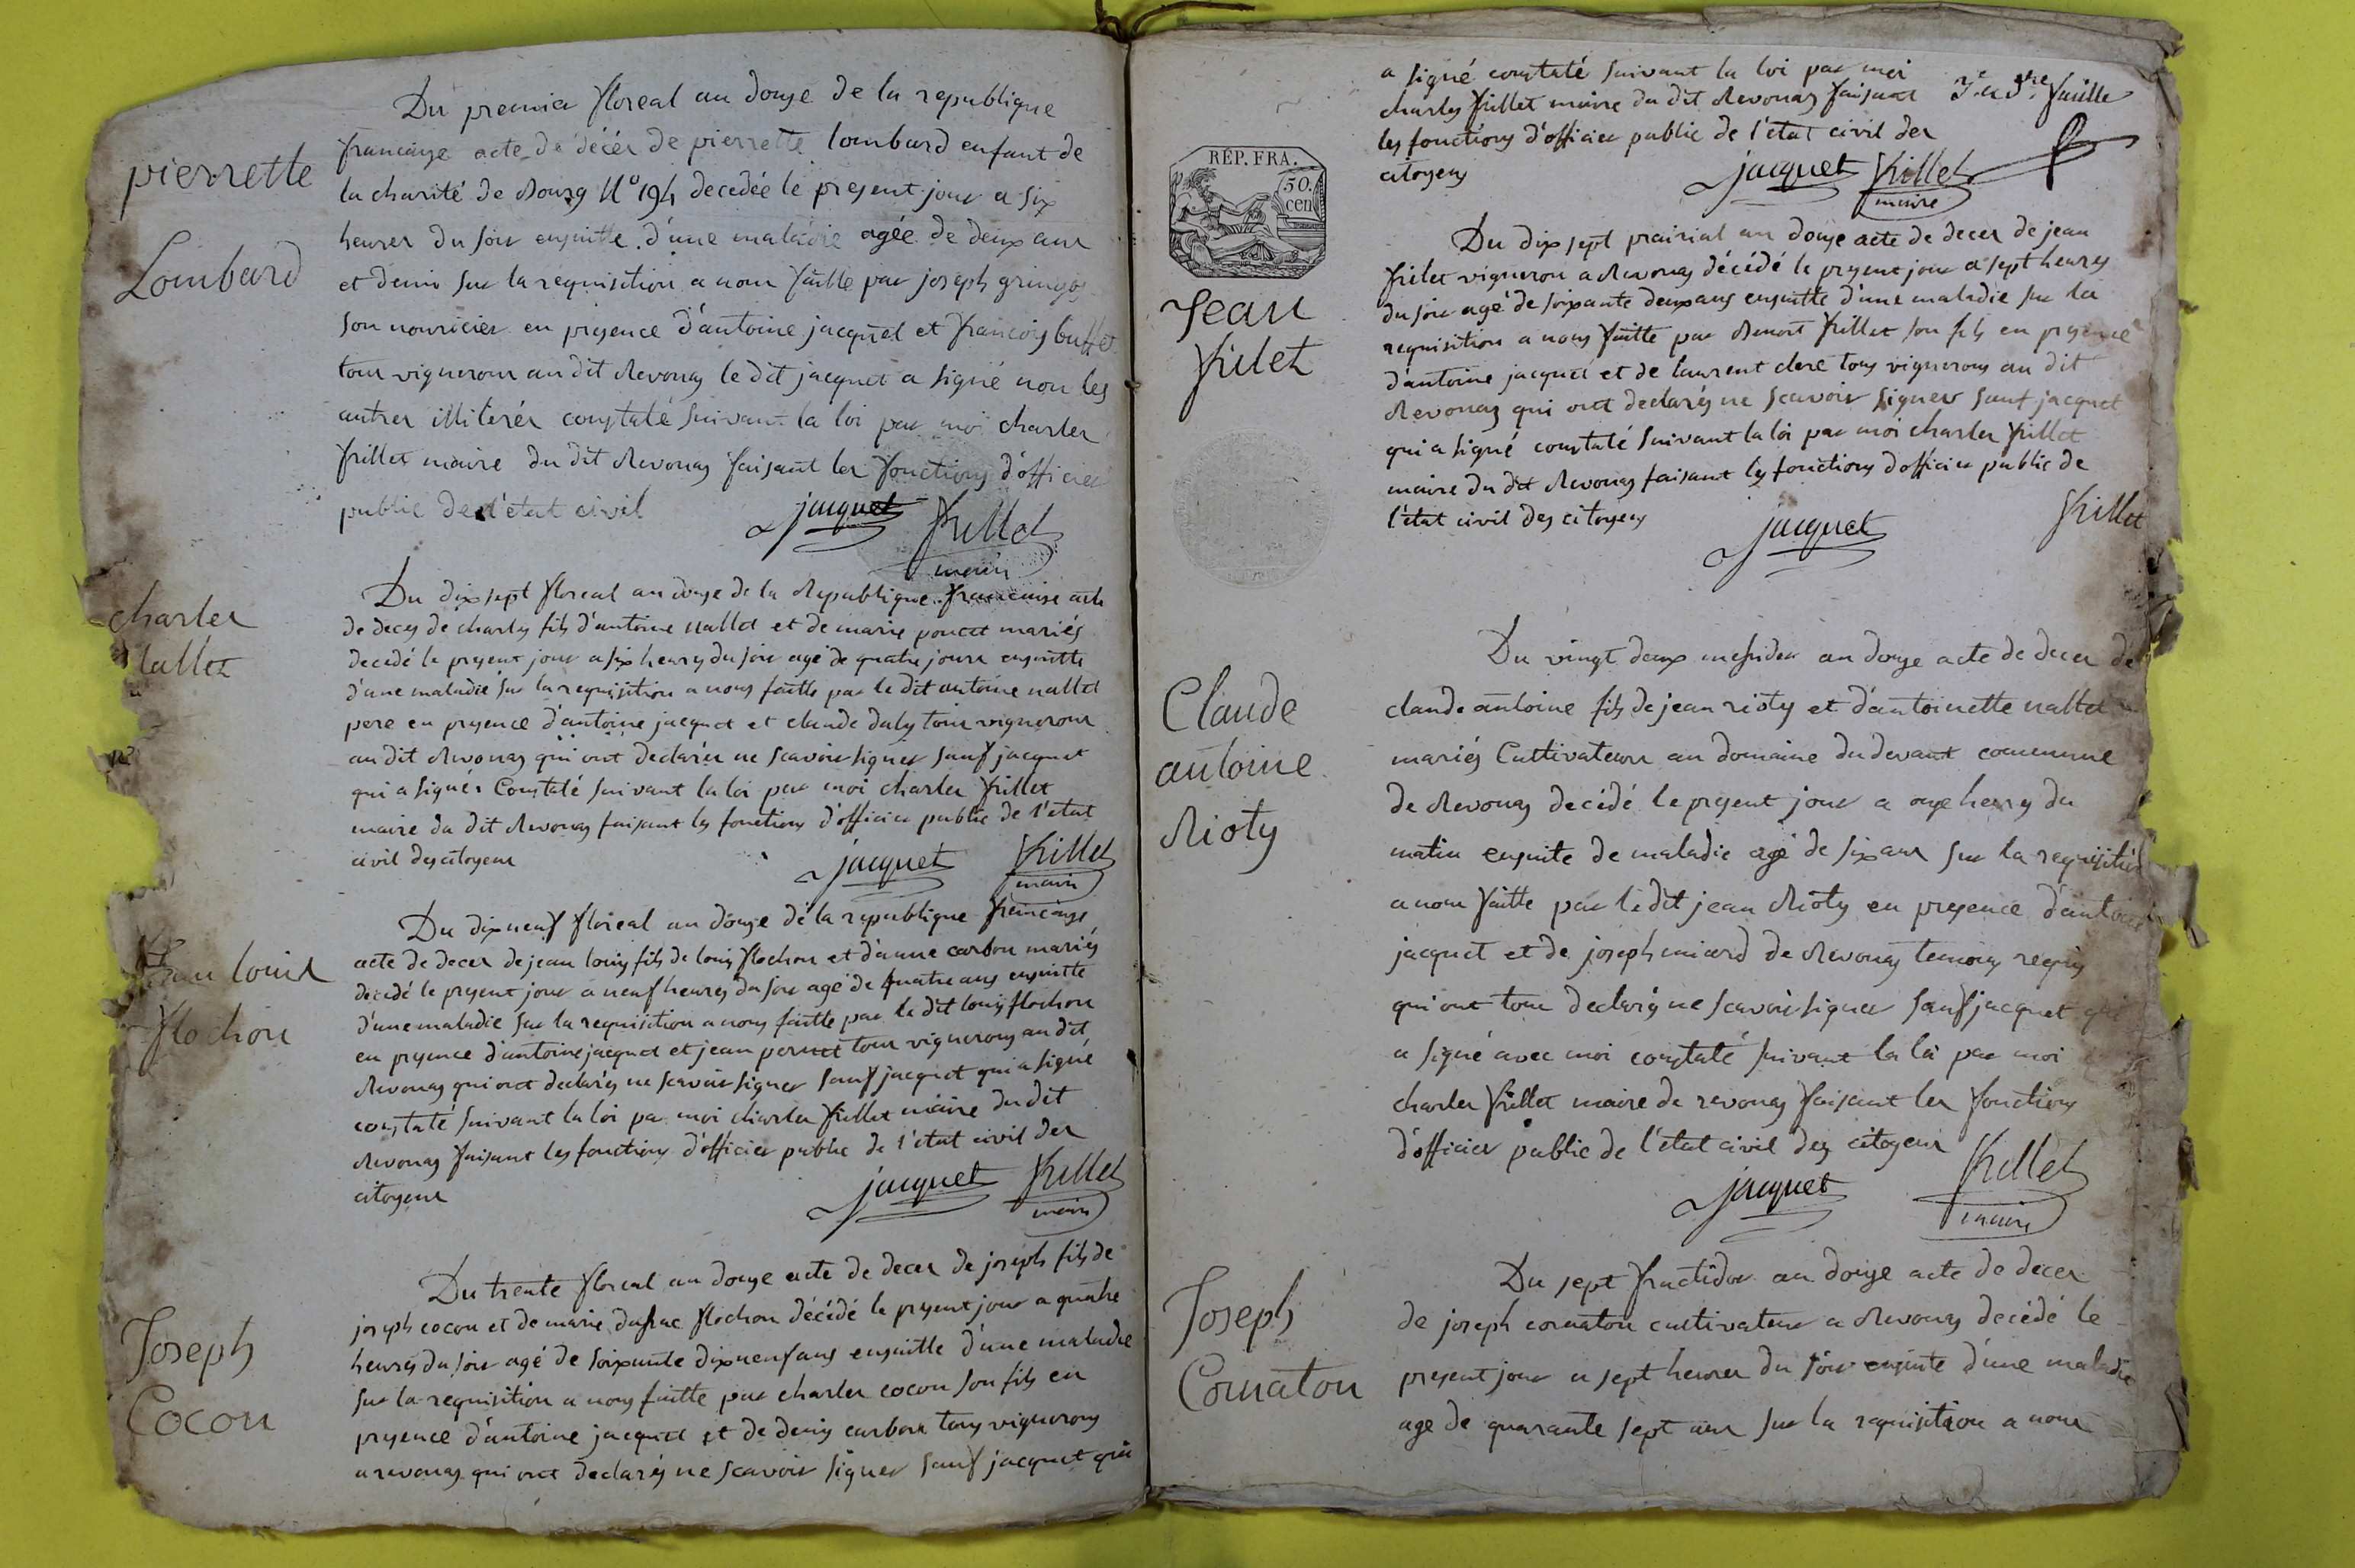 Du premier floreal an douze de la republique
francaise acte de décès de pierrette lombard enfant de
la charité de Bourg N° 194 decedée le present jour a six
heures du soir ensuitte d'une maladie agée de deux ans
et demi sur la requisition a nous faitte par joseph gringoz
son nouricier en presence d'antoine jacquet et francois buffet
tous vignerons au dit Revonas le dit jacquet a signé non les
autres illiterés constaté suivant la loi par moi charles
frillet maire du dit Revonas faisant les fonctions d'officier
public de l'état civil
jacquet frillet
maire
pierrette
Lombard
Du dix sept floreal an douze de la Republique francaise acte
de deces de charles fils d'antoine nallet et de marie poncet mariés
decédé le present jour a six heures du soir agé de quatre jours ensuitte
d'une maladie sur la requisition a nous faitte par le dit antoine nallet
pere en presence d'antoine jacquet et claude daly tous vignerons
au dit Revonas qui ont declarés ne scavoir signer sauf jacquet
qui a signés Constaté suivant la loi par moi charles frillet
maire du dit Revonas faisant les fonctions d'officier public de l'etat
civil des citoyens
jacquet frillet
maire
charles
nallet
Du dix neuf floreal an douze de la republique francaise
acte de deces de jean louis fils de louis flochon et d'anne carbon mariés
decédé le present jour a neuf heures du soir agé de quatre ans ensuitte
d'une maladie sur la requisition a nous faitte par le dit louis flochon
en presence d'antoine jacquet et jean pernet tous vignerons au dit
Revonas qui ont declarés ne scavoir signer sauf jacquet qui a signé
constaté suivant la loi par moi charles frillet maire du dit
Revonas faisant les fonctions d'officier public de l'etat civil des
citoyens
jacquet frillet
maire
Jean louis
flochon
Du trente floreal an douze acte de deces de joseph fils de
joseph cocon et de marie flochon décédé le present jour a quatre
heures du soir agé de soixante dix neuf ans ensuitte d'une maladie
sur la requisition a nous faitte par charles cocon son fils en
presence d'antoine jacquet et de denis carbon tous vignerons
a revonas qui ont declarés ne scavoir signer sauf jacquet qui
Joseph
Cocon
a signé constaté suivant la loi par moi
charles frillet maire du dit Revonas faisant
les fonctions d'officier public de l'état civil des
citoyens
jacquet frillet
maire
feuille
REP. FRA.
50.
cen
Du dix sept prairial an douze acte de deces de jean
frilet vigneron a Revonas décédé le present jour a sept heures
du soir agé de soixante deux ans ensuitte d'une maladie sur la
requisition a nous faitte par Benoit frillet son fils en presence
d'antoine jacquet et de laurent clerc tous vignerons au dit
Revonas qui ont declarés ne scavoir signer sauf jacquet
qui a signé constaté suivant la loi par moi charles frillet
maire du dit Revonas faisant les fonctions d'officier public de
l'état civil des citoyens
jacquet frillet
Jean
frilet
Du vingt deux messidor an douze acte de deces de
claude antoine fils de jean rioty et d'antoinette nallet
mariés Cultivateurs au domaine du devant commune
de Revonas decédé le present jour a onze heures du
matin ensuite de maladie agé de six ans sur la requisition
a nous faitte par le dit jean Rioty en presence d'antoine
jacquet et de joseph miard de Revonas temoins requis
qui ont tous declarés ne scavoir signer sauf jacquet qui
a signé avec moi constaté suivant la loi par moi
charles frillet maire de revonas faisant les fonctions
d'officier public de l'état civil des citoyens
jacquet frillet
maire
Claude
antoine
Rioty
Du sept fructidor an douze acte de deces
de joseph cornaton cultivateur a Revonas decédé le
present jour a sept heures du soir ensuite d'une maladie
age de quarante sept ans sur la requisition a nous
Joseph
Cornaton